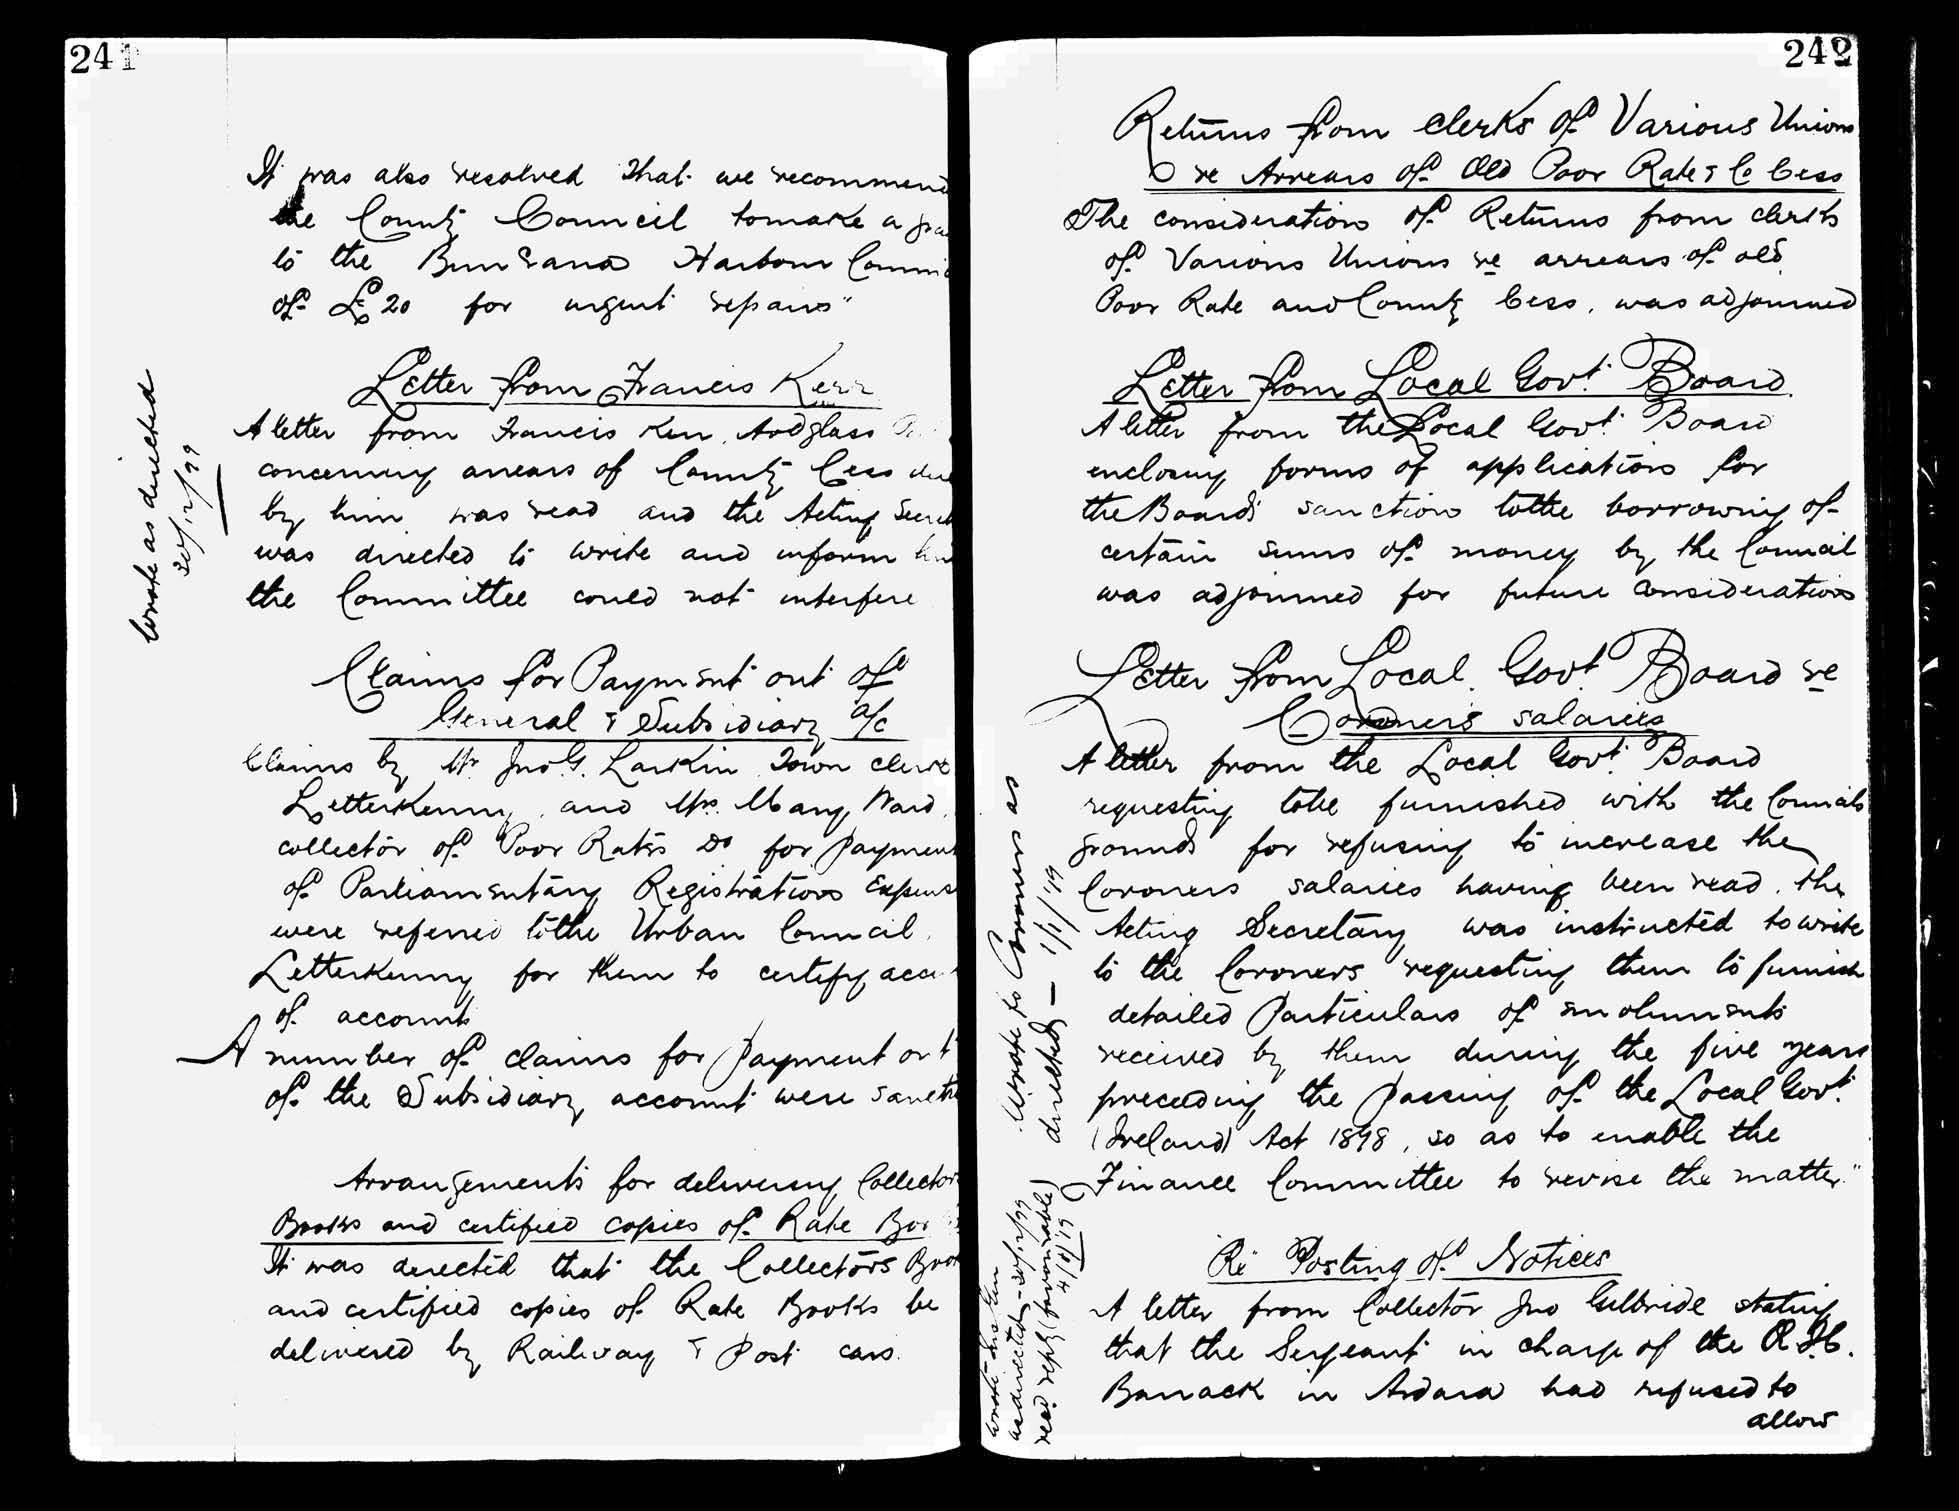 241
It was also resolved that we recommend
the County Council to make a
to the Buncrana Harbour
of £20 for urgent repairs"
Letter from Francis Kerr
A letter from Francis Kerr, Ardglass
concerning arrears of County Cess due
by him was read and the Acting
was directed to write and inform him
the Committee could not interfere
wrote as directed
30/12/99
Claims for Payment out of
General & Subsidiary a/c
Claims by Mr Jno G. Larkin Town clerk
Letterkenny, and Mrs. Mary Ward,
collector of Poor Rates Do for payment
of Parliamentary Registration Expens
were referred to the Urban Council,
Letterkenny for them to certify
of account
A number of claims for payment out
of the Subsidiary account were
Arrangements for delivering Collectors
Books and certified copies of Rate
It was directed that the Collectors
and certified copies of Rate Books be
delivered by Railway & Post cars.
242
Returns from Clerks of Various Unions
re Arrears of Old Poor Rate & Co Cess
The consideration of Returns from clerks
of Various Unions re arrears of old
Poor Rate and County Cess, was adjourned
Letter from Local Govt. Board
A letter from the Local Govt. Board
enclosing forms of application for
the Boards sanction to the borrowing of
certain sums of money by the Council
was adjourned for future consideration
Letter from Local Govt Board re
Coroners salaries
A letter from the Local Govt. Board
requesting to be furnished with the Councils
grounds for refusing to increase the
Coroners salaries having been read, the
Acting Secretary was instructed to write
to the Coroners requesting them to furnish
detailed Particulars of emoluments
received by them during the five years
preceding the passing of the Local Govt.
(Ireland) Act 1898, so as to enable the
Finance Committee to revise the matter"
Wrote to Coroners as
directed — 1/1/19
Re Posting of Notices
A letter from Collector Jno Gilbride stating
that the Sergeant in charge of the R.I.C.
Barrack in Ardara had refused to
allow
as directed - 30/12/99
read reply (favourable)
4/1/19